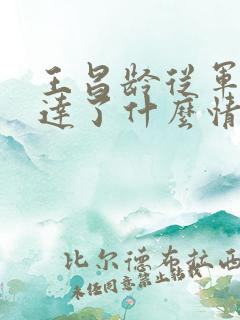 王昌龄从军
達了什麼情
比尔德布拉西
未经同意禁止转载